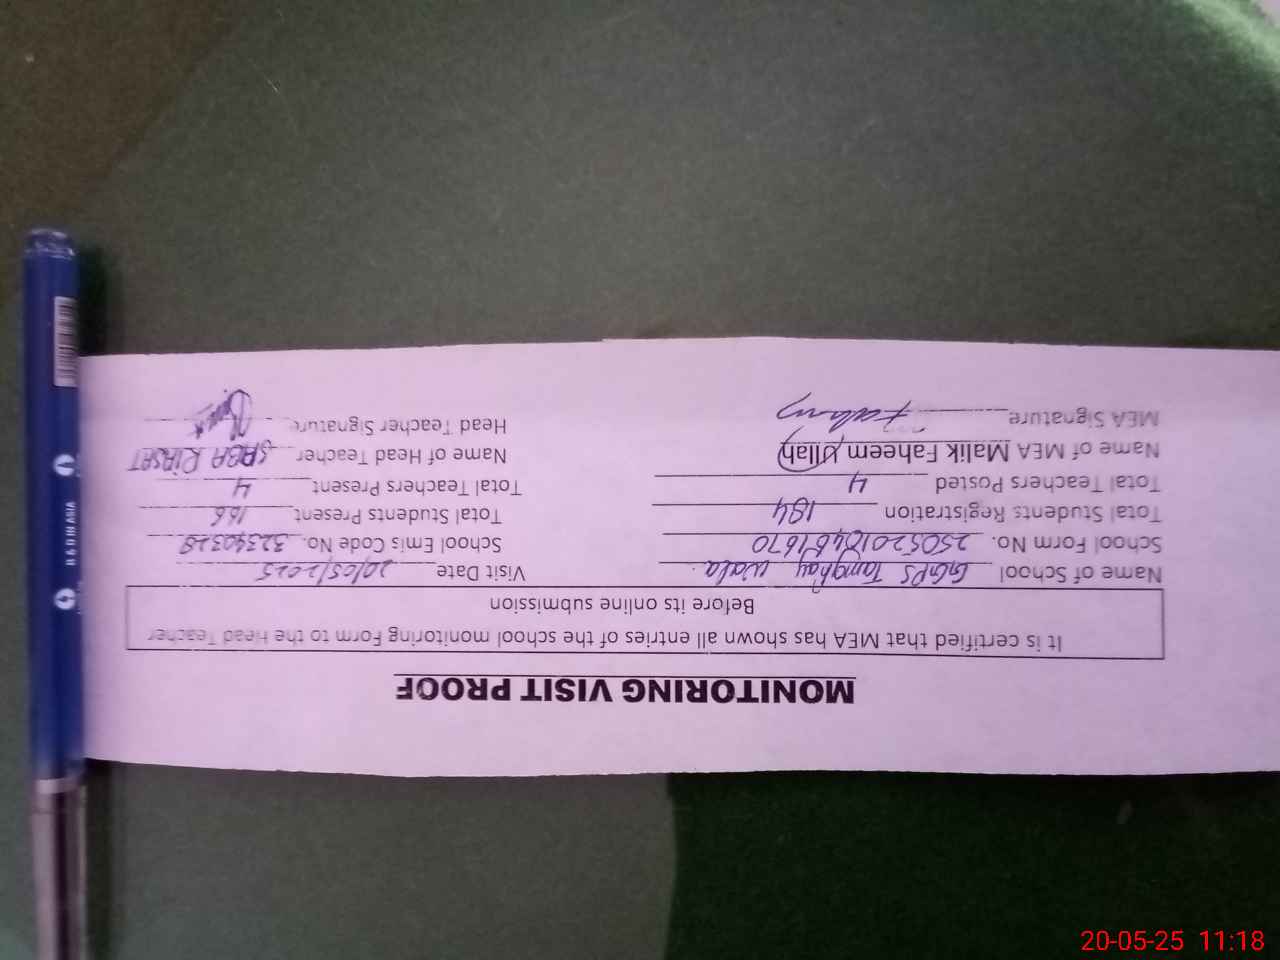 MONITORING VISIT PROOF
It is certified that MEA has shown all entries of the school monitoring Form to the Head Teacher
Before its online submission
Name of School GGPS Tamghay wala. Visit Date 20/05/2025
School Form No. School Emis Code No. 32340328
Total Students Registration 184 Total Students Present 166
Total Teachers Posted 4 Total Teachers Present 4
Name of MEA Malik Faheem Ullah Name of Head Teacher SABA RIASAT
MEA Signature Faheem Head Teacher Signature
R & D IN ASIA
20-05-25 11:18